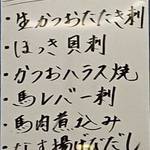 ・生かつおたたき刺
・ほっき貝刺
・かつおハラス焼
・馬レバー刺
・馬肉煮込み
・なす揚げだし